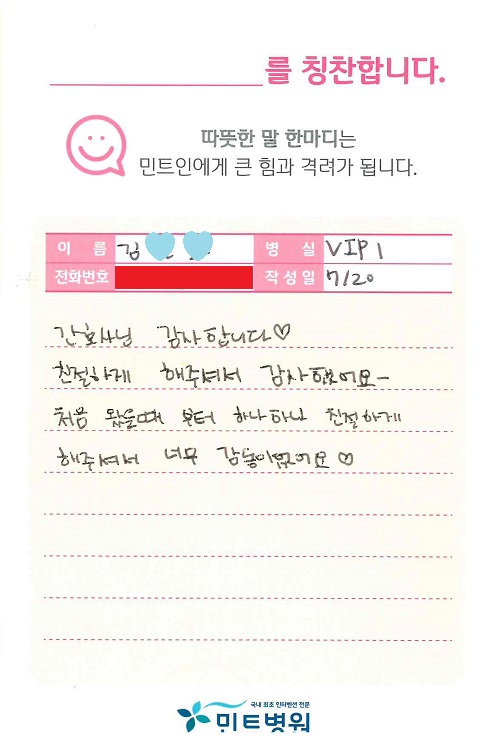 를 칭찬합니다.
따뜻한 말 한마디는
민트인에게 큰 힘과 격려가 됩니다.
이 름 김 병 실 VIP 1
전화번호 작성일 7/20
간호사님 감사합니다♡
친절하게 해주셔서 감사했어요~
처음 왔을때 부터 하나하나 친절하게
해주셔서 너무 감동이였어요 ♡
국내 최초 인터벤션 전문
민트병원